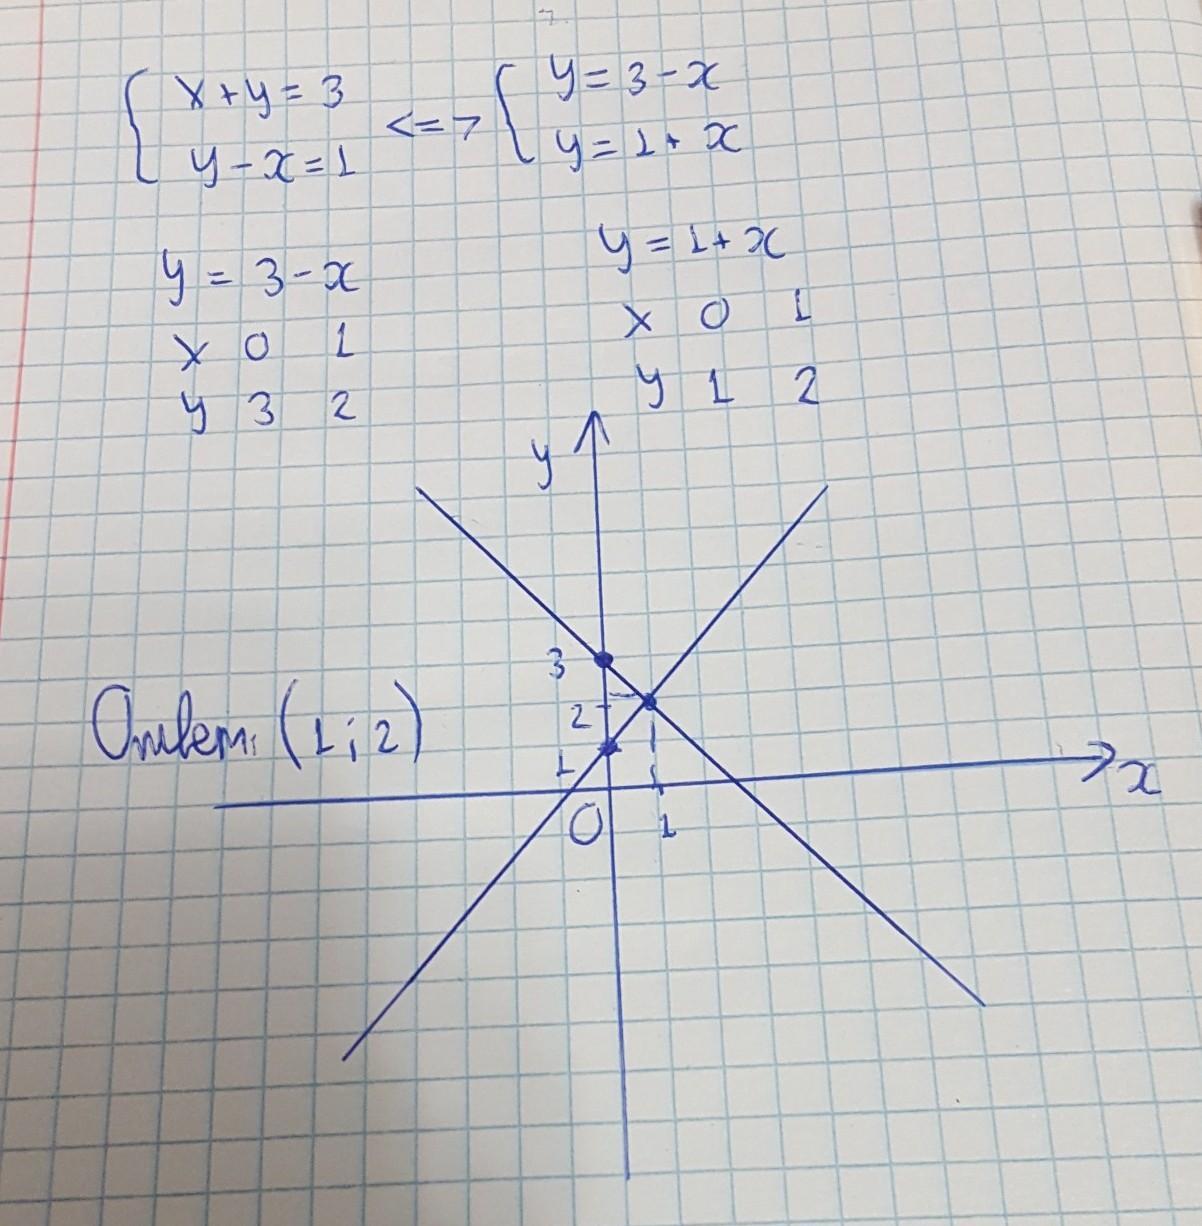 { x+y=3 <=> { y=3-x
y-x=1 y=1+x
y=3-x
x 0 1
y 3 2
y=1+x
x 0 1
y 1 2
y
3
2
1
0 1
x
Ответ: (1;2)